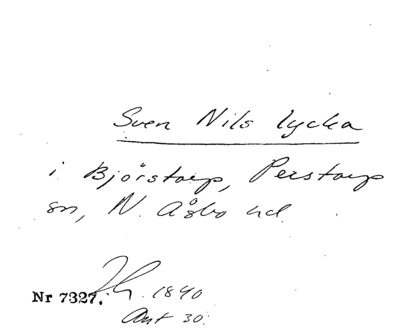 Sven Nils lycka
i Björstorp, Perstorp
sn, N. Åsbo hd.
Nr 7327. 1840
Ant 30.